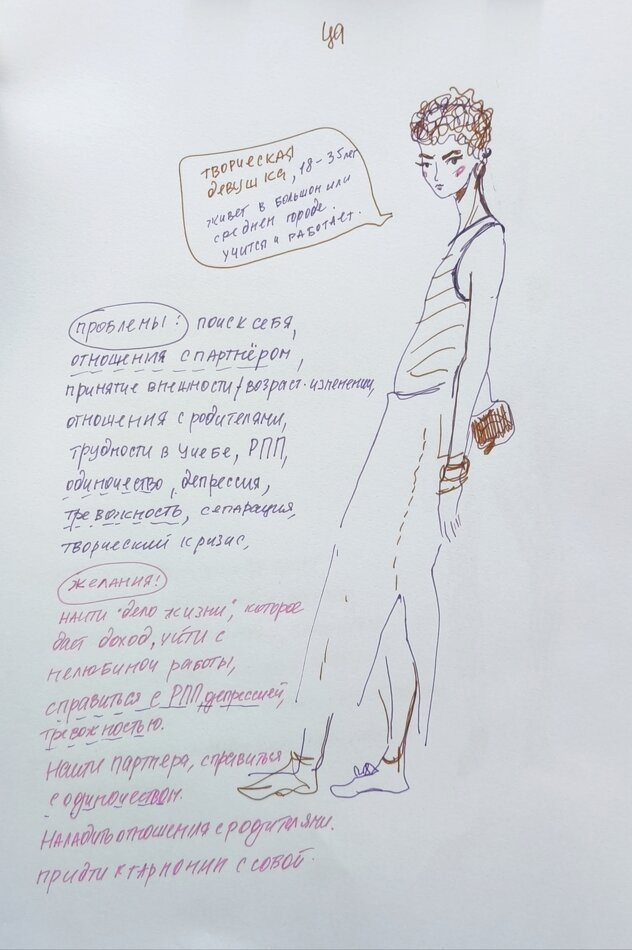 ЦА
ТВОРЧЕСКАЯ
девушка, 18-35 лет
живет в большом или
среднем городе.
учится и работает.
ПРОБЛЕМЫ: поиск себя,
отношения с партнёром,
принятие внешности/возраст. изменений,
отношения с родителями,
трудности в учебе, РПП,
одиночество, депрессия,
тревожность, сепарация,
творческий кризис,
ЖЕЛАНИЯ!
найти "дело жизни", которое
даст доход, уйти с
нелюбимой работы,
справиться с РПП, депрессией,
тревожностью.
Найти партнера, справиться
с одиночеством.
Наладить отношения с родителями.
придти к гармонии с собой.